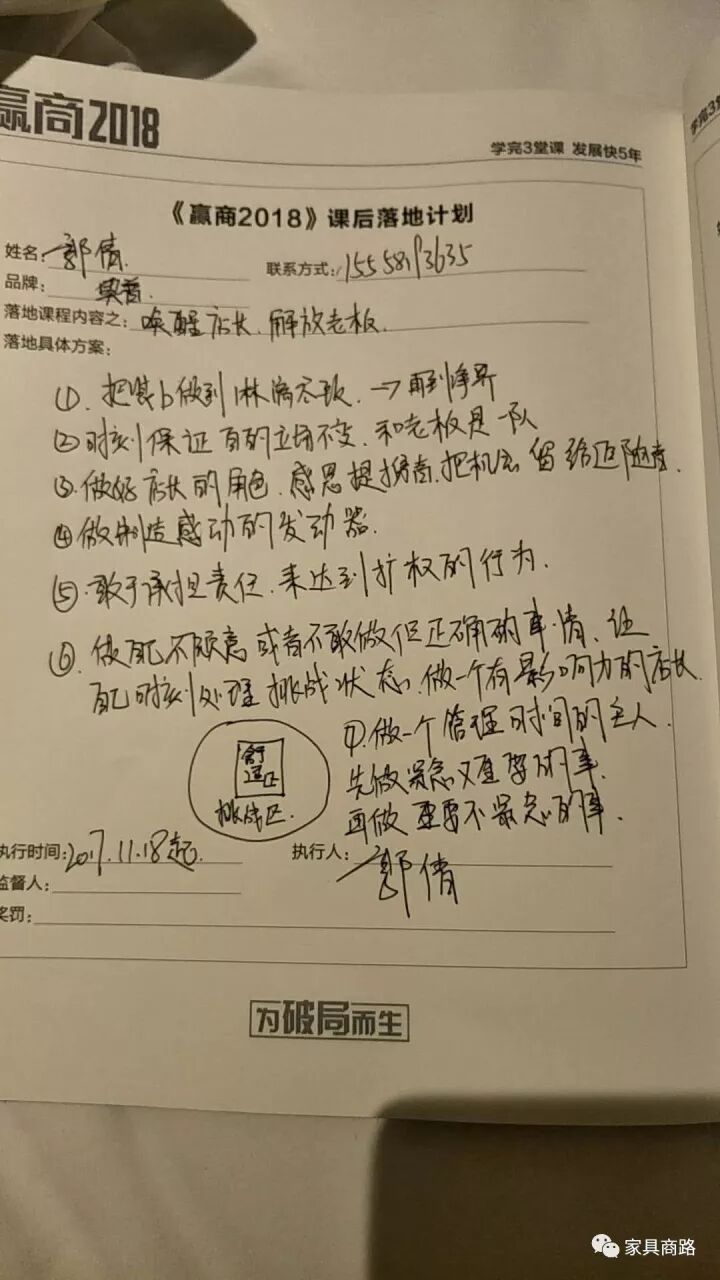 赢商2018
学完3堂课 发展快5年
学完3
《赢商2018》课后落地计划
姓名：郭倩.
联系方式：
品牌：
落地课程内容之：唤醒店长.解放老板.
落地具体方案：
①.把装b做到淋漓尽致.→再到
②时刻保证自的立场不变.和老板是一队
③.做好店长的角色.感恩提携者.把机会留给追随者.
④做制造感动的发动器.
⑤.敢于承担责任.来达到扩权的行为.
⑥.做自己不愿意或者不敢做但正确的事情、让
自己时刻处理挑战状态.做一个有影响力的店长.
⑦.做一个管理时间的主人.
先做紧急又重要的事.
再做重要不紧急的事.
舒
适区
挑战区.
执行时间：2017.11.18起.
执行人：郭倩
监督人：
奖罚：
为破局而生
家具商路